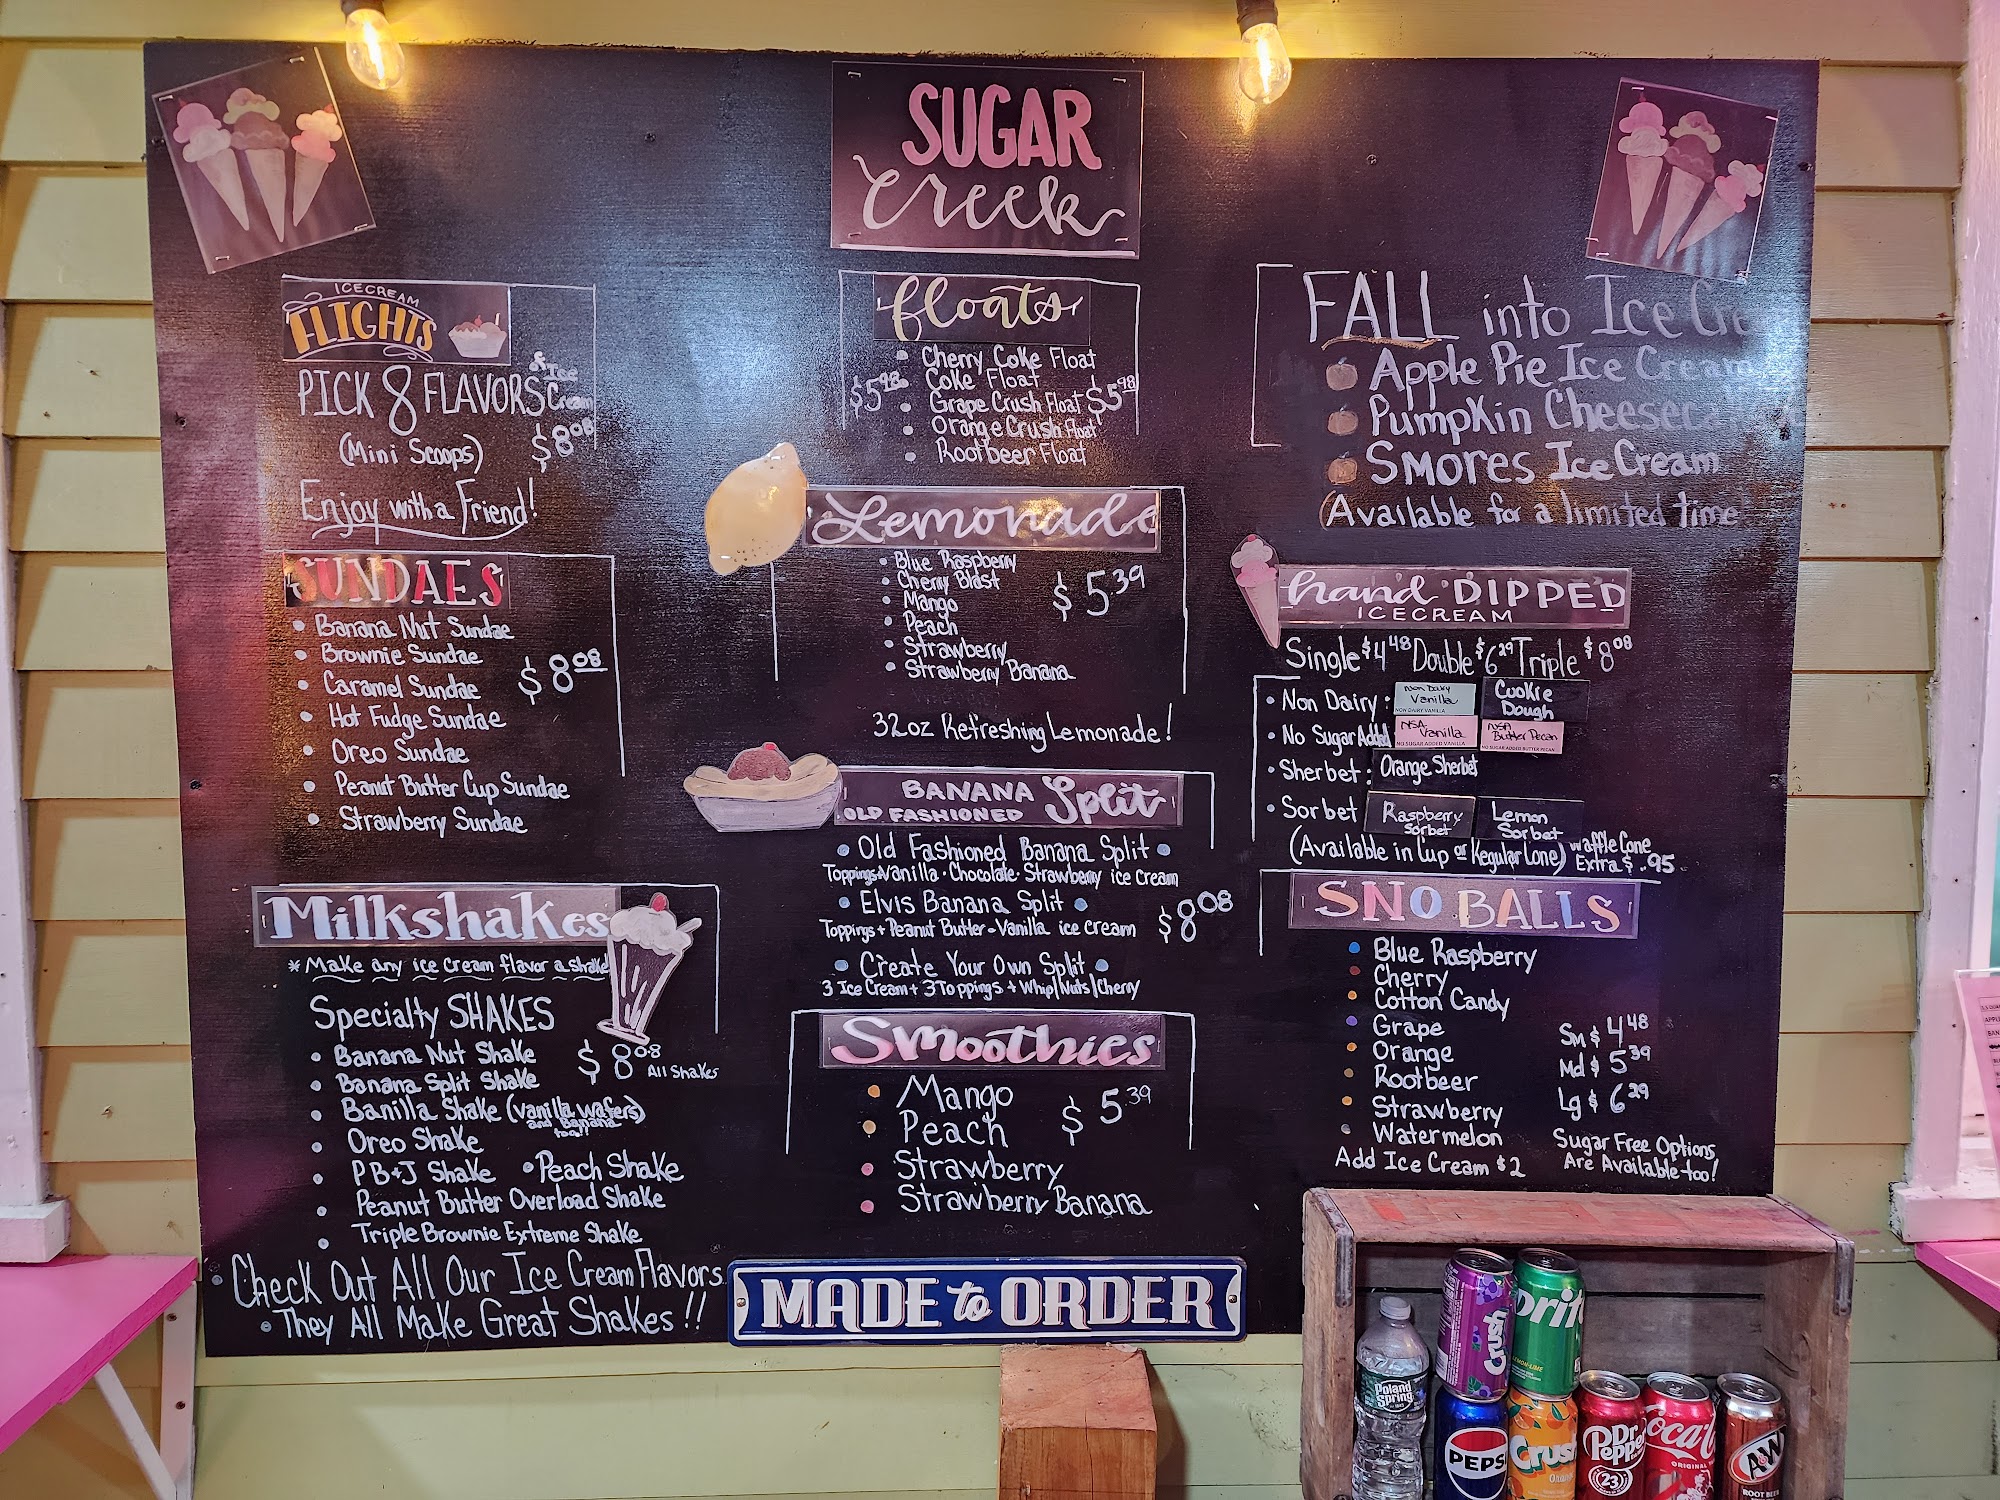 SUGAR
Creek
ICECREAM
FLIGHTS
PICK 8 FLAVORS
& Ice
Cream
(Mini Scoops)
$8.08
Enjoy with a Friend!
SUNDAES
• Banana Nut Sundae
• Brownie Sundae
• Caramel Sundae
$8.08
• Hot Fudge Sundae
• Oreo Sundae
• Peanut Butter Cup Sundae
• Strawberry Sundae
Milkshakes
* Make any ice cream flavor a shake
Specialty SHAKES
• Banana Nut Shake
$8.08
All Shakes
• Banana Split Shake
• Banilla Shake (vanilla wafers)
and Banana
too!!
• Oreo Shake
• PB+J Shake • Peach Shake
• Peanut Butter Overload Shake
• Triple Brownie Extreme Shake
• Check Out All Our Ice Cream Flavors
• They All Make Great Shakes!!
floats
• Cherry Coke Float
• Coke Float
$5.98
• Grape Crush Float
$5.98
• Orange Crush Float
• Rootbeer Float
Lemonade
• Blue Raspberry
• Cherry Blast
• Mango
$5.39
• Peach
• Strawberry
• Strawberry Banana
32oz Refreshing Lemonade!
BANANA Split
OLD FASHIONED
• Old Fashioned Banana Split •
Toppings+Vanilla • Chocolate • Strawberry ice cream
• Elvis Banana Split •
Toppings + Peanut Butter - Vanilla ice cream
$8.08
• Create Your Own Split •
3 Ice Cream + 3 Toppings + Whip/Nuts/Cherry
Smoothies
• Mango
$5.39
• Peach
• Strawberry
• Strawberry Banana
MADE to ORDER
FALL into Ice
Apple Pie Ice Cream
Pumpkin
SMORES Ice Cream
(Available for a limited time
hand DIPPED
ICECREAM
Single $4.48 Double $6.29 Triple $8.08
• Non Dairy:
Non Dairy
Vanilla
NON DAIRY VANILLA
Cookie
Dough
• No Sugar Added
NSA
Vanilla
NO SUGAR ADDED VANILLA
NSA
Butter Pecan
NO SUGAR ADDED BUTTER PECAN
• Sherbet:
Orange Sherbet
• Sorbet
Raspberry
Sorbet
Lemon
Sorbet
(Available in Cup or Regular Cone)
Waffle Cone
Extra $.95
SNO BALLS
• Blue Raspberry
• Cherry
• Cotton Candy
• Grape
• Orange
• Rootbeer
• Strawberry
• Watermelon
Add Ice Cream $2
Sm $4.48
Md $5.39
Lg $6.29
Sugar Free Options
Are Available too!
Crush
Poland
Spring
PEPSI
Crush
Dr
Pepper
23
Coca
ORIGINAL
A&W
ROOT BEER